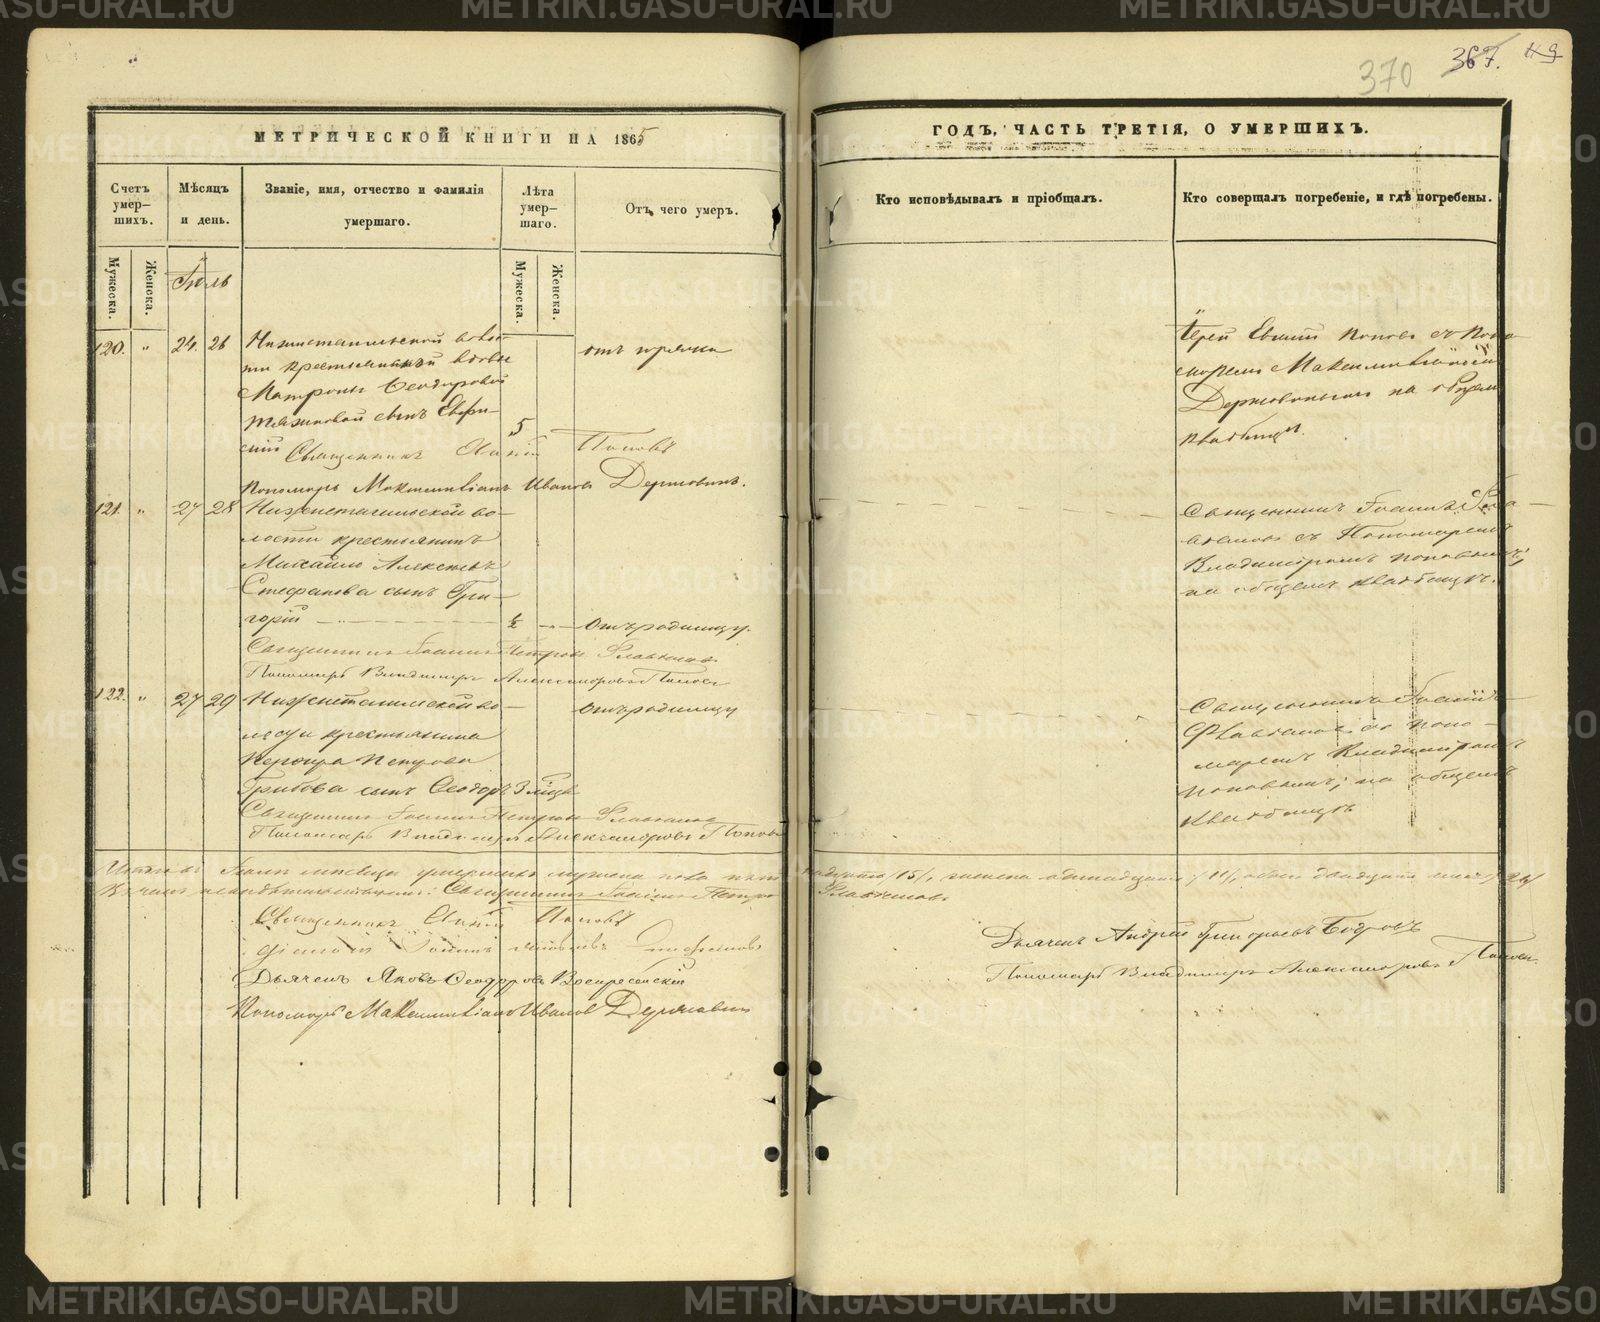 METRIKI.GASO-URAL.RU
370
367.
МЕТРИЧЕСКОЙ КНИГИ НА 1865
ГОДЪ, ЧАСТЬ ТРЕТІЯ, О УМЕРШИХЪ.
Счетъ умер-шихъ.
Мѣсяцъ и день.
Званіе, имя, отчество и фамилія умершаго.
Лѣта умер-шаго.
Отъ чего умеръ.
Кто исповѣдывалъ и пріобщалъ.
Кто совершалъ погребеніе, и гдѣ погребены.
Мужеска.
Женска.
Мужеска.
Женска.
Іюль
120. " 24. 26
крестьянской вдовы
Матроны Ѳеодоровой
сынъ Евфи-
мій
5
Священникъ Попов
Пономарь Максимиліанъ Ивановъ Державинъ.
Іерей Попов съ Поно-
марем Максимиліаном
Державиным на общем
кладбище.
121. " 27 28 Нижнетагильской во-
лости крестьянина
Михаила Алексѣева
Стефанова сынъ Гри-
горій ½ Отъ родимцу.
Священникъ Іоаннъ Петровъ Флавіановъ
Пономарь Владимиръ Александровъ Поповъ
Священникъ Іоаннъ Фла-
віановъ съ Пономаремъ
Владиміромъ Поповымъ;
на общемъ кладбищѣ.
122. " 27 29 Нижнетагильской во-
лости крестьянина
Петрова
Грибова сынъ Ѳеодоръ 3 мѣсяц.
Отъ родимцу
Священникъ Іоаннъ Петровъ Флавіановъ
Пономарь Владимиръ Александровъ Поповъ
Священникъ Іоаннъ
Флавіановъ съ поно-
маремъ Владиміромъ
Поповымъ; на общемъ
кладбищѣ
Итого въ Іюлѣ мѣсяцѣ умершихъ мужеска пола пят надцать /15/, женска одинадцать /11/, обоего двадцать шесть /26/
Священникъ Іоаннъ Петровъ Флавіановъ
Священникъ Попов
Діаконъ Іоаннъ
Дьячекъ Яковъ Ѳеодоровъ Воскресенскій
Пономарь Максимиліанъ Ивановъ Державин
Дьячекъ Андрей Григорьевъ Бобровъ
Пономарь Владимиръ Александровъ Поповъ.